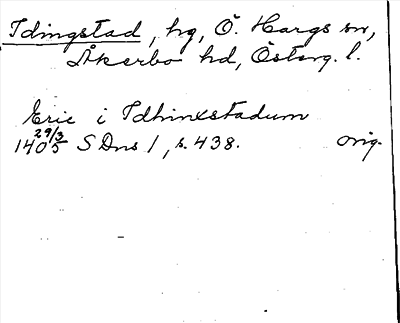 Idingstad, hg, Ö. Hargs sn,
Åkerbo hd, Österg. l.
Eric i Idhinxstadum
29/3
1405 SDns 1, s. 438. orig.